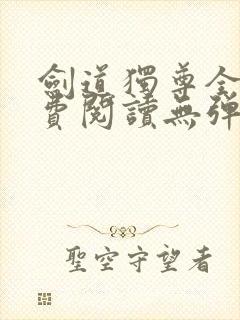 劍道獨尊全
費閱讀無彈
聖空守望者